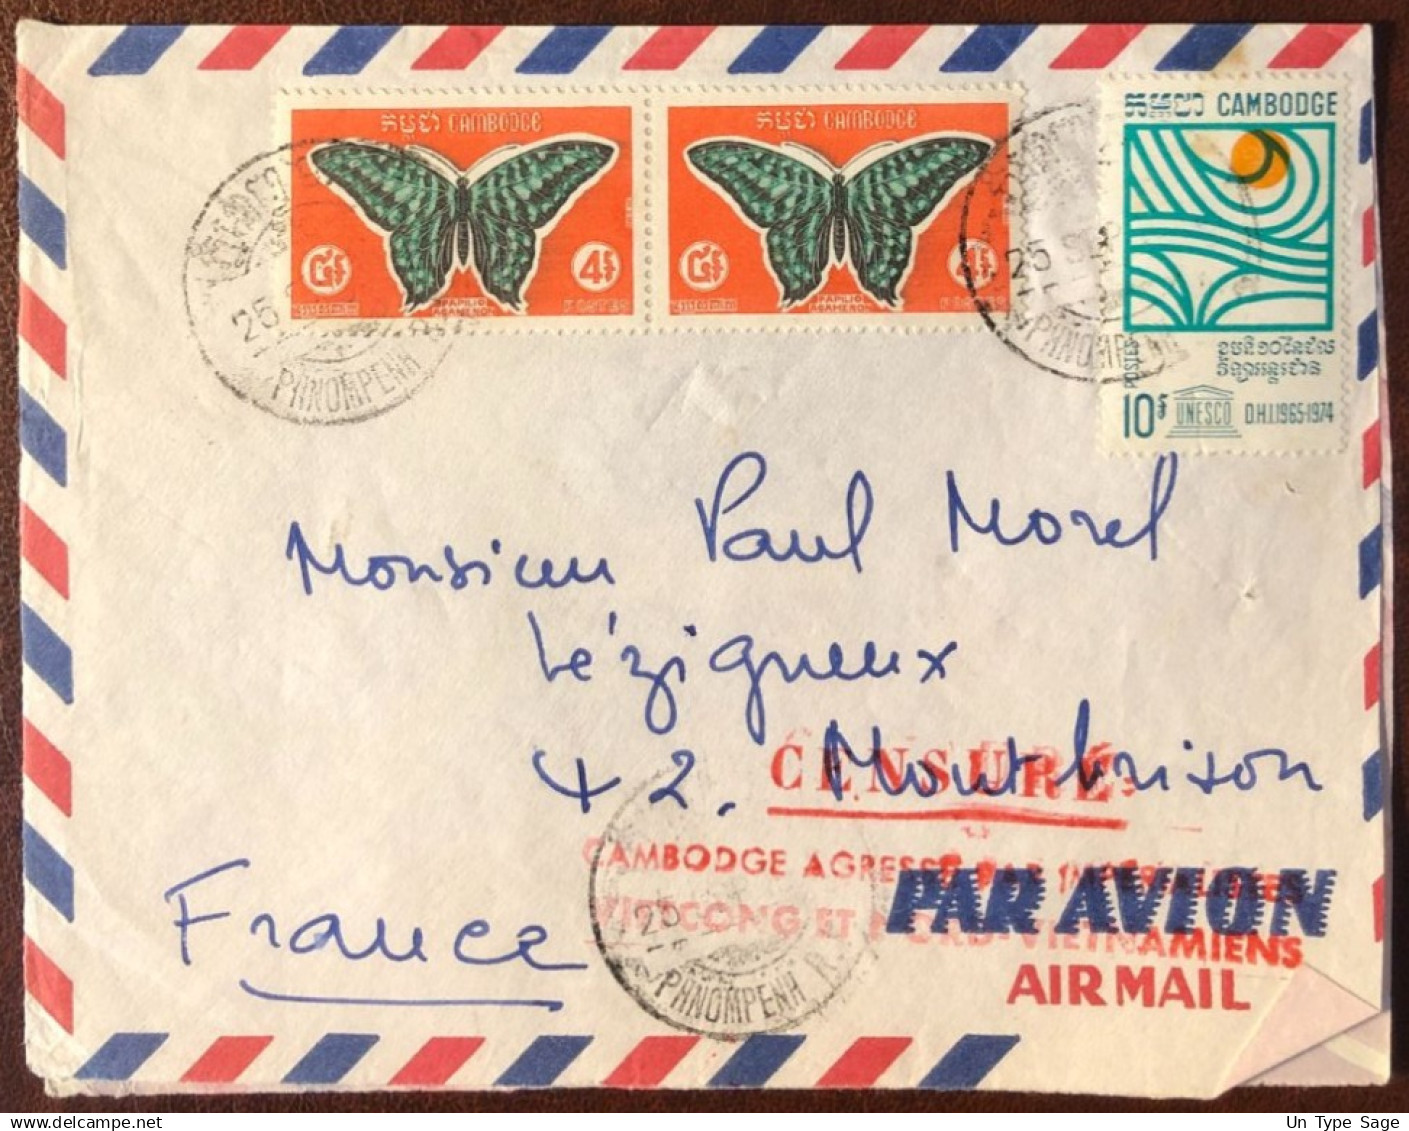 កម្ពុជា CAMBODGE
4F
PAPILIO
AGAMEMNON
POSTES
កម្ពុជា CAMBODGE
4F
PAPILIO
AGAMEMNON
POSTES
កម្ពុជា CAMBODGE
POSTES
10F UNESCO D.H.I.1965-1974
25
PHNOMPENH
25
PHNOMPENH
Monsieur Paul Morel
Lézigneux
42. Montbrison
France
CENSURÉ
CAMBODGE AGRESSÉ PAR IMPÉRIALISTES
VIETCONG ET NORD-VIETNAMIENS
25
PHNOMPENH R.P.
PAR AVION
AIR MAIL
Un Type Sage